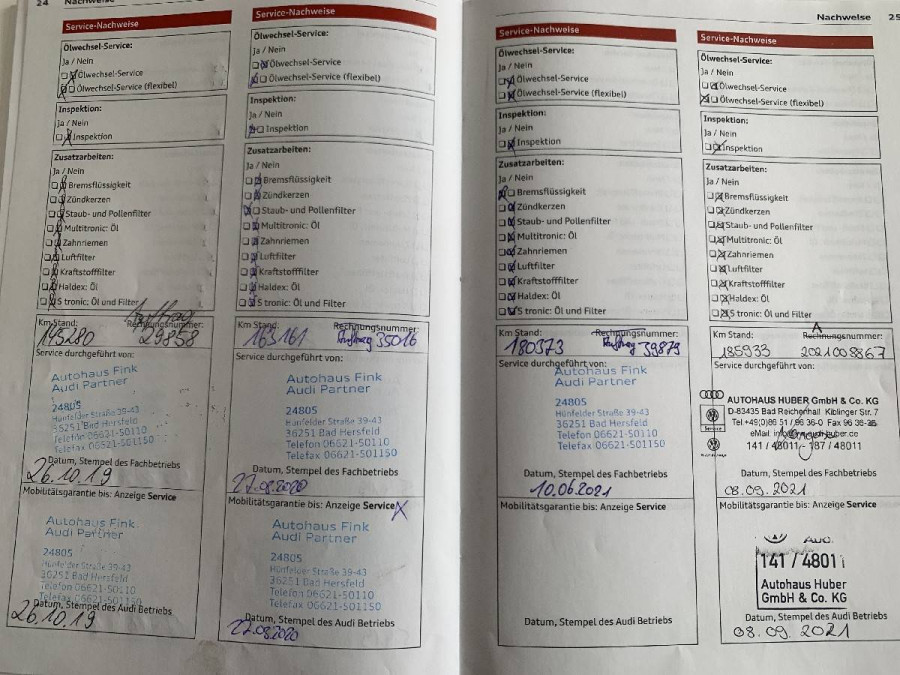 24
Service-Nachweise
Ölwechsel-Service:
Ja / Nein
Ölwechsel-Service
Ölwechsel-Service (flexibel)
Inspektion:
Ja / Nein
Inspektion
Zusatzarbeiten:
Ja / Nein
Bremsflüssigkeit
Zündkerzen
Staub- und Pollenfilter
Multitronic: Öl
Zahnriemen
Luftfilter
Kraftstofffilter
Haldex: Öl
S tronic: Öl und Filter
Auftrag
Km Stand: Rechnungsnummer:
145280 29858
Service durchgeführt von:
Autohaus Fink
Audi Partner
24805
Hünfelder Straße 39-43
36251 Bad Hersfeld
Telefon 06621-50110
Telefax 06621-501150
Datum, Stempel des Fachbetriebs
26.10.19
Mobilitätsgarantie bis: Anzeige Service
Autohaus Fink
Audi Partner
24805
Hünfelder Straße 39-43
36251 Bad Hersfeld
Telefon 06621-50110
Telefax 06621-501150
Datum, Stempel des Audi Betriebs
26.10.19
Service-Nachweise
Ölwechsel-Service:
Ja / Nein
Ölwechsel-Service
Ölwechsel-Service (flexibel)
Inspektion:
Ja / Nein
Inspektion
Zusatzarbeiten:
Ja / Nein
Bremsflüssigkeit
Zündkerzen
Staub- und Pollenfilter
Multitronic: Öl
Zahnriemen
Luftfilter
Kraftstofffilter
Haldex: Öl
S tronic: Öl und Filter
Km Stand: Rechnungsnummer:
163161 Auftrag 35016
Service durchgeführt von:
Autohaus Fink
Audi Partner
24805
Hünfelder Straße 39-43
36251 Bad Hersfeld
Telefon 06621-50110
Telefax 06621-501150
Datum, Stempel des Fachbetriebs
27.08.2020
Mobilitätsgarantie bis: Anzeige Service X
Autohaus Fink
Audi Partner
24805
Hünfelder Straße 39-43
36251 Bad Hersfeld
Telefon 06621-50110
Telefax 06621-501150
Datum, Stempel des Audi Betriebs
27.08.2020
Nachweise 25
Service-Nachweise
Ölwechsel-Service:
Ja / Nein
Ölwechsel-Service
Ölwechsel-Service (flexibel)
Inspektion:
Ja / Nein
Inspektion
Zusatzarbeiten:
Ja / Nein
Bremsflüssigkeit
Zündkerzen
Staub- und Pollenfilter
Multitronic: Öl
Zahnriemen
Luftfilter
Kraftstofffilter
Haldex: Öl
S tronic: Öl und Filter
Km Stand: Rechnungsnummer:
180373 Auftrag 39879
Service durchgeführt von:
Autohaus Fink
Audi Partner
24805
Hünfelder Straße 39-43
36251 Bad Hersfeld
Telefon 06621-50110
Telefax 06621-501150
Datum, Stempel des Fachbetriebs
10.06.2021
Mobilitätsgarantie bis: Anzeige Service
Datum, Stempel des Audi Betriebs
Service-Nachweise
Ölwechsel-Service:
Ja / Nein
Ölwechsel-Service
Ölwechsel-Service (flexibel)
Inspektion:
Ja / Nein
Inspektion
Zusatzarbeiten:
Ja / Nein
Bremsflüssigkeit
Zündkerzen
Staub- und Pollenfilter
Multitronic: Öl
Zahnriemen
Luftfilter
Kraftstofffilter
Haldex: Öl
S tronic: Öl und Filter
A
Km Stand: Rechnungsnummer:
185933 2021008867
Service durchgeführt von:
AUTOHAUS HUBER GmbH & Co. KG
D-83435 Bad Reichenhall Kiblinger Str. 7
Tel.+49(0)86 51 / 96 36-0 Fax 96 36-36
eMail
141 / 48011 - 187 / 48011
Service
Datum, Stempel des Fachbetriebs
08.09.2021
Mobilitätsgarantie bis: Anzeige Service
141 / 4801
Autohaus Huber
GmbH & Co. KG
Datum, Stempel des Audi Betriebs
08.09.2021